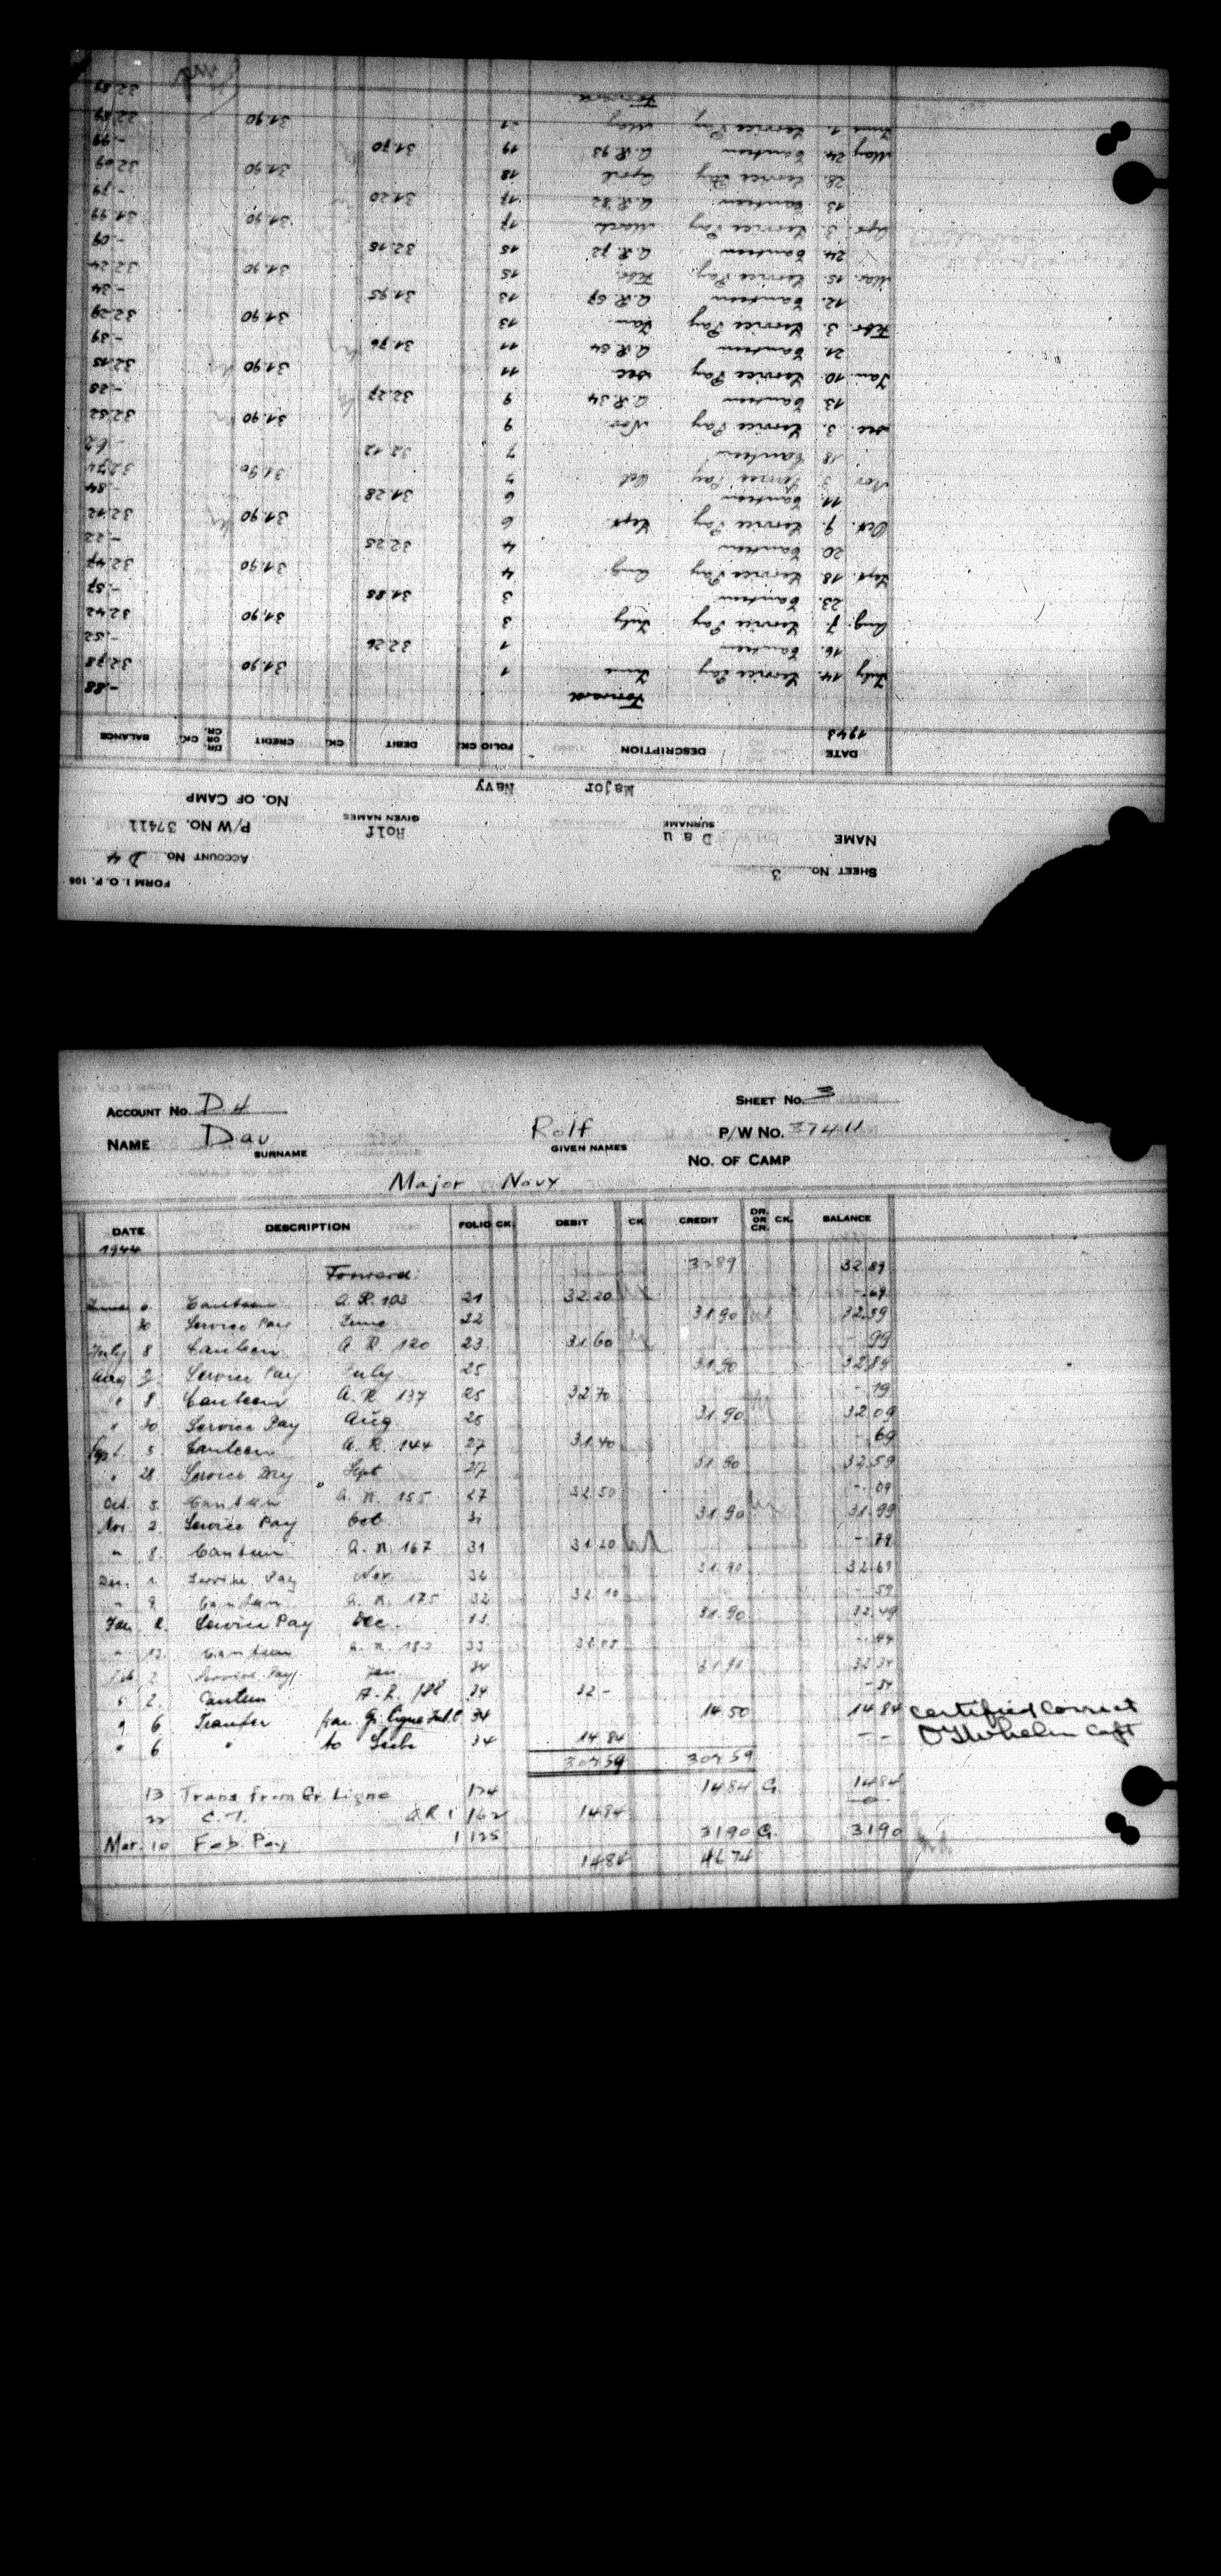 FORM I. O. F. 106
SHEET No. 3 ACCOUNT No. D4
NAME Dau Rolf P/W No. 37411
SURNAME GIVEN NAMES
Major Navy NO. OF CAMP
DATE DESCRIPTION FOLIO CK. DEBIT CK. CREDIT DR. OR CR. CK. BALANCE
1943
Forward -.88
July 14. Service Pay June 1 31.90 32.78
16. Canteen 1 32.26 -.52
Aug. 7. Service Pay July 3 31.90 32.42
23. Canteen 3 31.85 -.57
Sept. 18 Service Pay Aug. 4 31.90 32.47
20 Canteen 4 32.25 -.22
Oct. 9. Service Pay Sept. 6 31.90 32.12
11. Canteen 6 31.28 -.84
Nov 3 Service Pay Oct 7 31.90 32.74
18 Canteen 7 32.12 -.62
Dec. 3. Service Pay Nov. 9 31.90 32.52
13 Canteen A.R. 34 9 32.27 -.25
Jan. 10. Service Pay Dec 11 31.90 32.15
21. Canteen A.R. 54 11 31.76 -.39
Febr. 3. Service Pay Jan 13 31.90 32.29
12. Canteen A.R. 67 13 31.95 -.34
Mar. 15. Service Pay Febr. 15 31.90 32.24
24. Canteen A.R. 72 15 32.15 -.09
Apr. 3. Service Pay March 17 31.90 31.99
13 Canteen A.R. 82 17 31.20 -.79
28. Service Pay April 18 31.90 32.69
May 24. Canteen A.R. 93 19 31.70 -.99
June 1. Service Pay May 21 31.90 32.89
Forward 32.89
ACCOUNT No. D4 SHEET No. 3
NAME Dau Rolf P/W No. 37411
SURNAME GIVEN NAMES
NO. OF CAMP
Major Navy
DATE DESCRIPTION FOLIO CK. DEBIT CK. CREDIT DR. OR CR. CK. BALANCE
1944
Forward 32 89 32 89
June 6. Canteen A.R. 103 21 32.20 -.69
30 Service Pay June 22 31.90 32.59
July 8 Canteen A.R. 120 23 31.60 -.99
Aug 2. Service Pay July 25 31.90 32.89
" 8 Canteen A.R. 137 25 32.70 -.19
" 30 Service Pay Aug. 26 31.90 32.09
Sept. 5 Canteen A.R. 144 27 31.40 -.69
" 28 Service Pay Sept 27 31.90 32.59
Oct. 5 Canteen A.R. 155 27 32.50 -.09
Nov. 2 Service Pay Oct 31 31.90 31.99
" 8. Canteen A.R. 167 31 31.20 -.79
Dec. 1 Service Pay Nov. 32 31.90 32.69
" 9 Canteen A.R. 175 32 32.10 -.59
Jan 2. Service Pay Dec. 33 31.90 32.49
" 12. Canteen A.R. 182 33 -.44
Feb 2 Service Pay Jan 34 31.90 32 34
" 2. Canteen A.R. 188 34 32 - -34
" 6 Transfer from Gr. Ligne 34 14.50 14 84 Certified Correct
" 6 " to 34 14 84 - - Capt
307.59 307.59
13 Trans from Gr Ligne 124 14 84 C. 14 84
22 C.T. A.R. 1 162 1484 -0-
Mar. 10 Feb. Pay 1 125 31 90 C. 31 90
1484 46 74